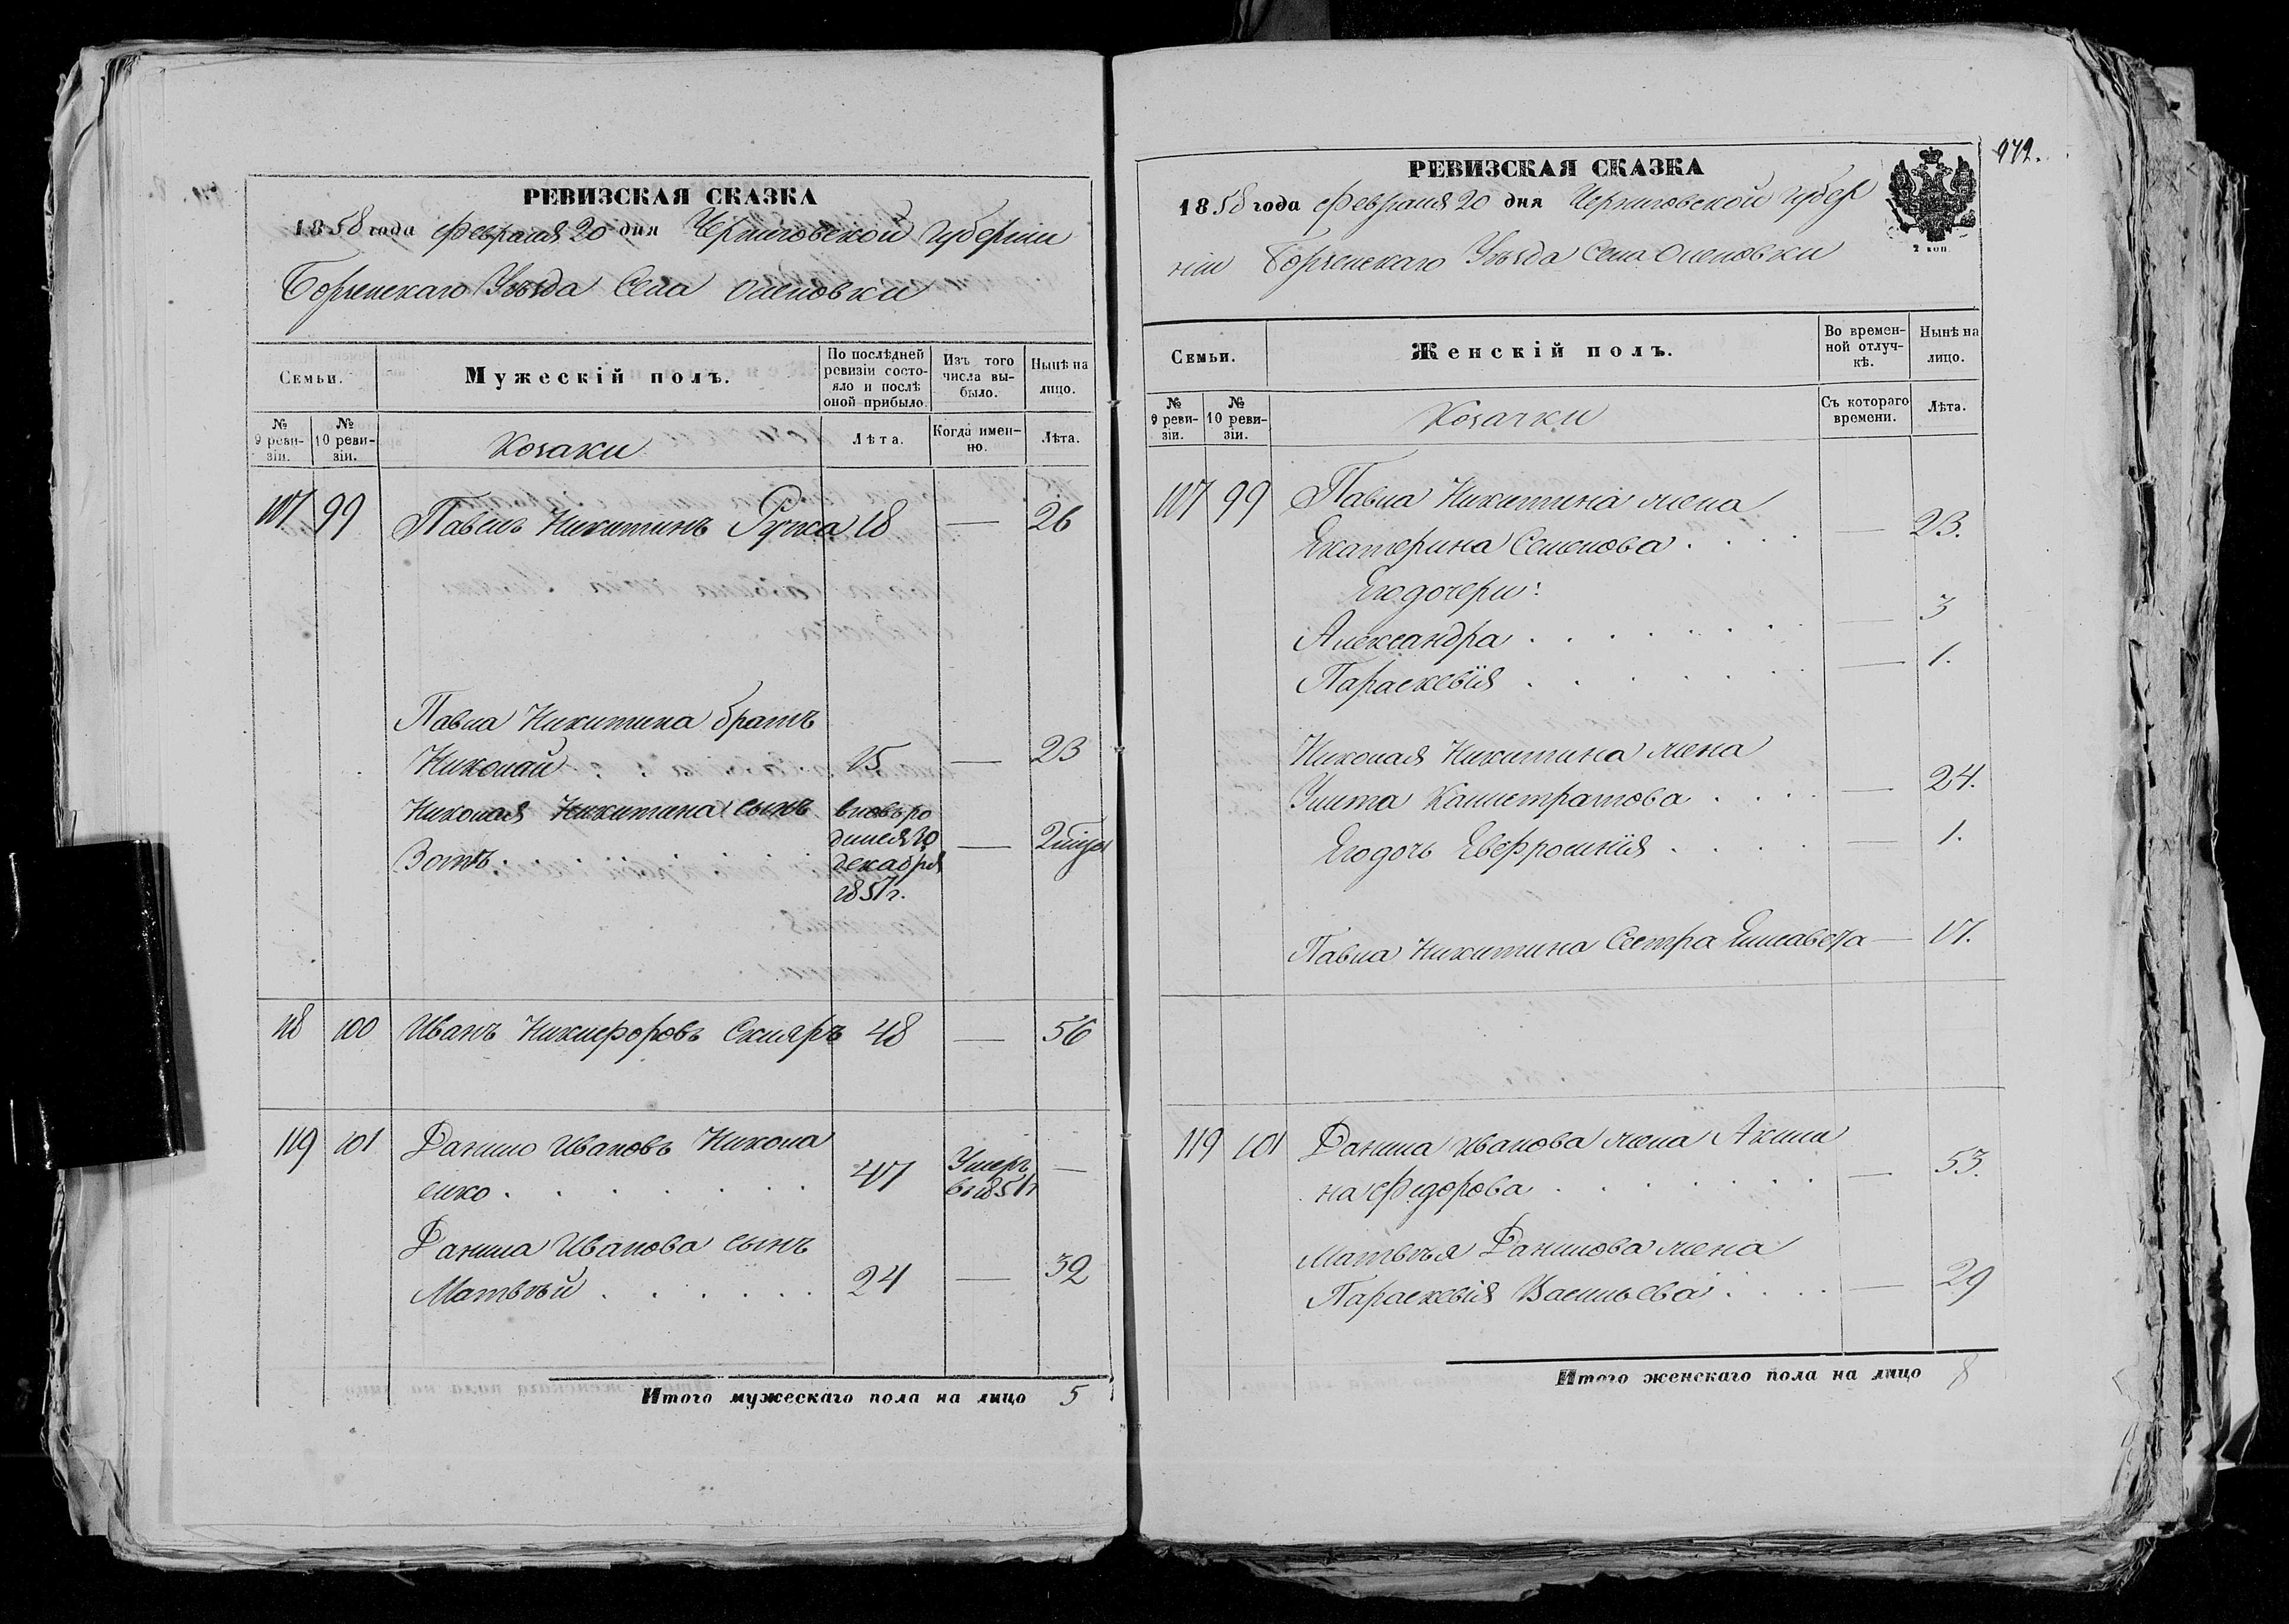 РЕВИЗСКАЯ СКАЗКА
1858 года Февраля 20 дня Черниговской Губерніи
Борзенскаго Уѣзда Села Оленовки
Семьи.
Мужескій полъ.
По послѣдней ревизіи состояло и послѣ оной прибыло.
Изъ того числа выбыло.
Нынѣ на лицо.
№ 9 ревизіи.
№ 10 ревизіи.
Козаки
Лѣта.
Когда именно.
Лѣта.
117 99 Павелъ Никитинъ Ручка 18 — 26
Павла Никитина братъ
Николай 15 — 23
Николая Никитина сынъ вновь ро
Зотъ. дился 20 декабря 1857 г. — 2 мѣсяца
118 100 Иванъ Никифоровъ Скляръ 48 — 56
119 101 Данило Ивановъ Никола
енко . . . . . . . 47 Умеръ въ 1857 г —
Данила Иванова сынъ
Матвѣй . . . . . . 24 — 32
Итого мужескаго пола на лицо 5
972.
РЕВИЗСКАЯ СКАЗКА
1858 года Февраля 20 дня Черниговской Губер
ніи Борзенскаго Уѣзда Села Оленовки
2 коп.
Семьи.
Женскій полъ.
Во временной отлучкѣ.
Нынѣ на лицо.
№ 9 ревизіи.
№ 10 ревизіи.
Козачки
Съ котораго времени.
Лѣта.
117 99 Павла Никитина жена
Екатерина Семенова . . . . — 23.
Его дочери:
Александра . . . . . . . — 3
Параскевія . . . . . . . — 1.
Николая Никитина жена
Улита Калистратова . . . . — 24.
Его дочь Евфросинія . . . . — 1.
Павла Никитина Сестра Елисавета — 17.
119 101 Данила Иванова жена Акили
на Федорова . . . . . . . — 53.
Матвѣя Данилова жена
Параскевія Васильева . . . . — 29
Итого женскаго пола на лицо 8